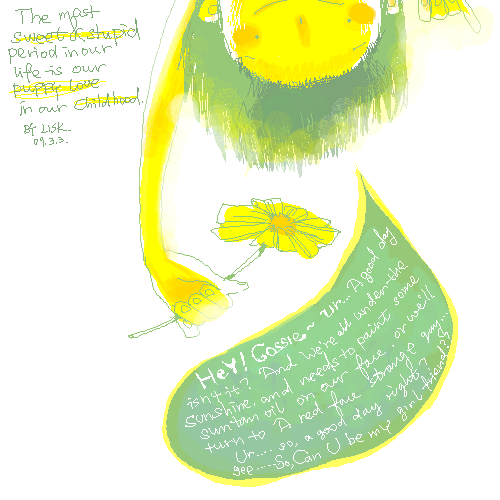 The most
sweet & stupid
period in our
life is our
puppy love
in our childhood.
BY LISK.
09.3.3.
HeY! Gassie~ Ur... A good day
isn't it? And We're all under the
sunshine, and needs to paint some
suntan oil on our face, or we'll
turn to A red face strange guy...
Ur.... so, a good day right?
gee.....So, Can U be my girl friend??